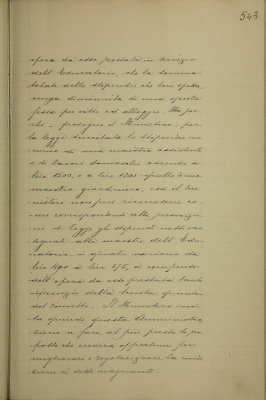 543
opera da esse prestata in servizio
dell'Educatorio, che la somma
totale dello stipendio che loro spetta
venga diminuita di una quota
fissa per vitto ed alloggio. Ma poi
chè - prosegue il Ministero - per
la legge surricitata lo stipendio mi
nimo di una maestra assistente
e di lavori donneschi ascende a
lire 1500, e a lire quello di una
maestra giardiniera, così il Mi
nistero non può riconoscere co
me corrispondenti alle prescrizio
ni di legge gli stipendi
segnati alle maestre dell'Edu
catorio, i quali variano da
lire 400 a lire 675, a compenso
dell'opera da esse prestata tanto
in servizio della Scuola quanto
del Convitto. Il Ministero in
vita quindi questa Amministra
zione a fare al più presto le pro
poste che crederà opportune per
migliorare e regolarizzare la condi
zione di dette insegnanti.